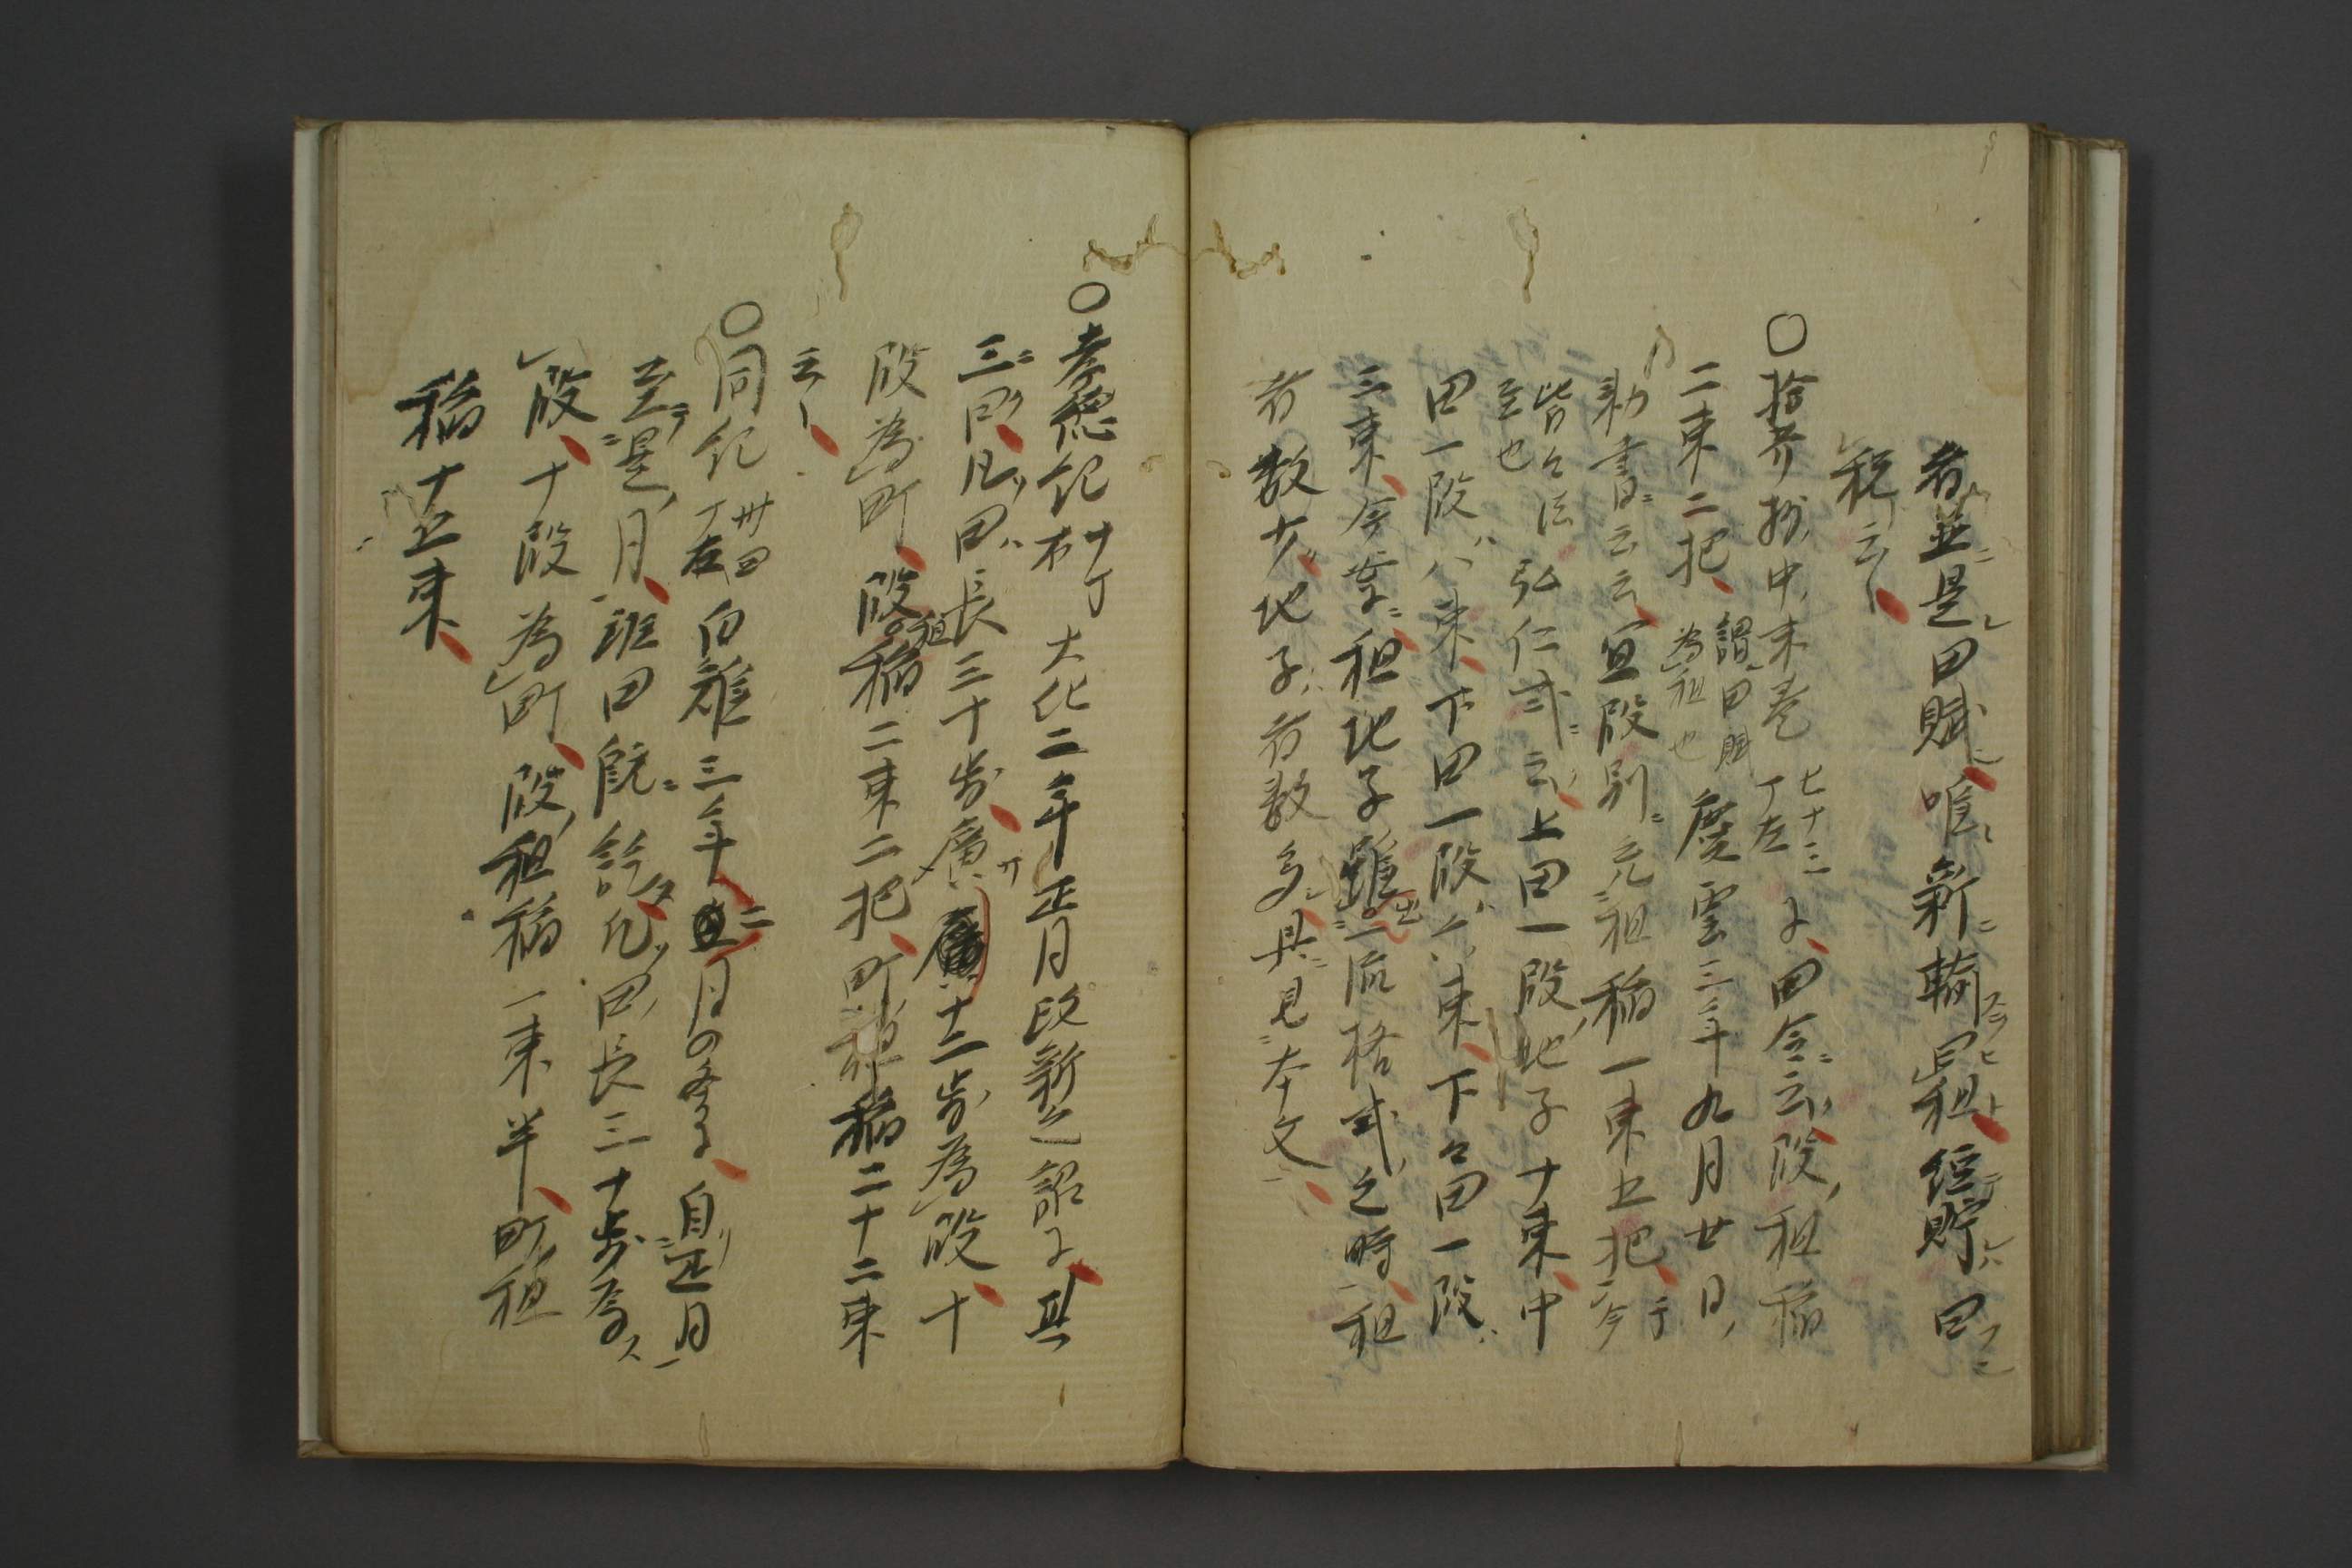 者並是田賦唯新輸曰租経貯曰
税云〻
〇拾芥抄中末巻七十三丁左に田令云段租稲
二束二把謂田賦為租也慶雲三年九月廿日
勅書云云宜段別充租稲一束五把于今
皆公法云也弘仁式云上田一段地子十束中
田一段八束下田一段六束下〻田一段
三束今案租地子雖出一流格式之時租
者数少地子者数多具見本文
〇孝徳紀廿丁右大化二年正月改新之詔に其
三曰凡田長三十歩廣十二歩為段十
段為町段租稲二束二把町租稲二十二束
云〻
〇同紀卅四丁左白雉三年二月の条に自正月
至是月班田既訖凡田長三十歩為
段十段為町段租稲一束半町租
稲十五束